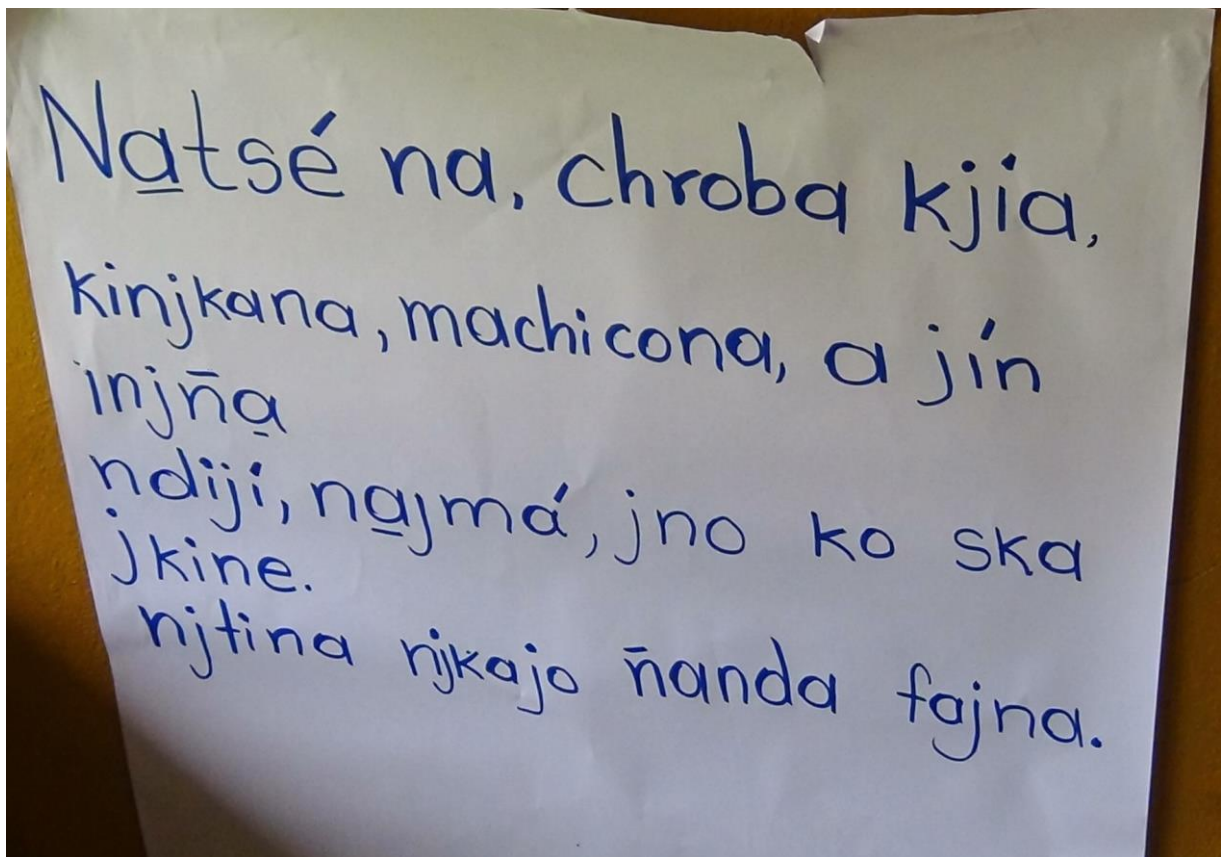 Na̱tsé na, chroba kjía,
kinjkana, machicona, a jín
injña̱
ndijí, na̱jmá, jno ko ska
jkine.
njtina njkajo ñanda fajna.